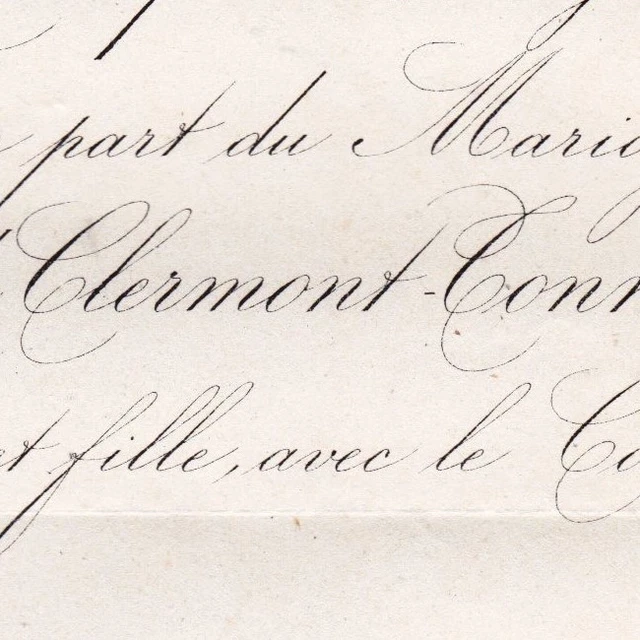 part du Mariag
Clermont-Tonn
et fille, avec le Co